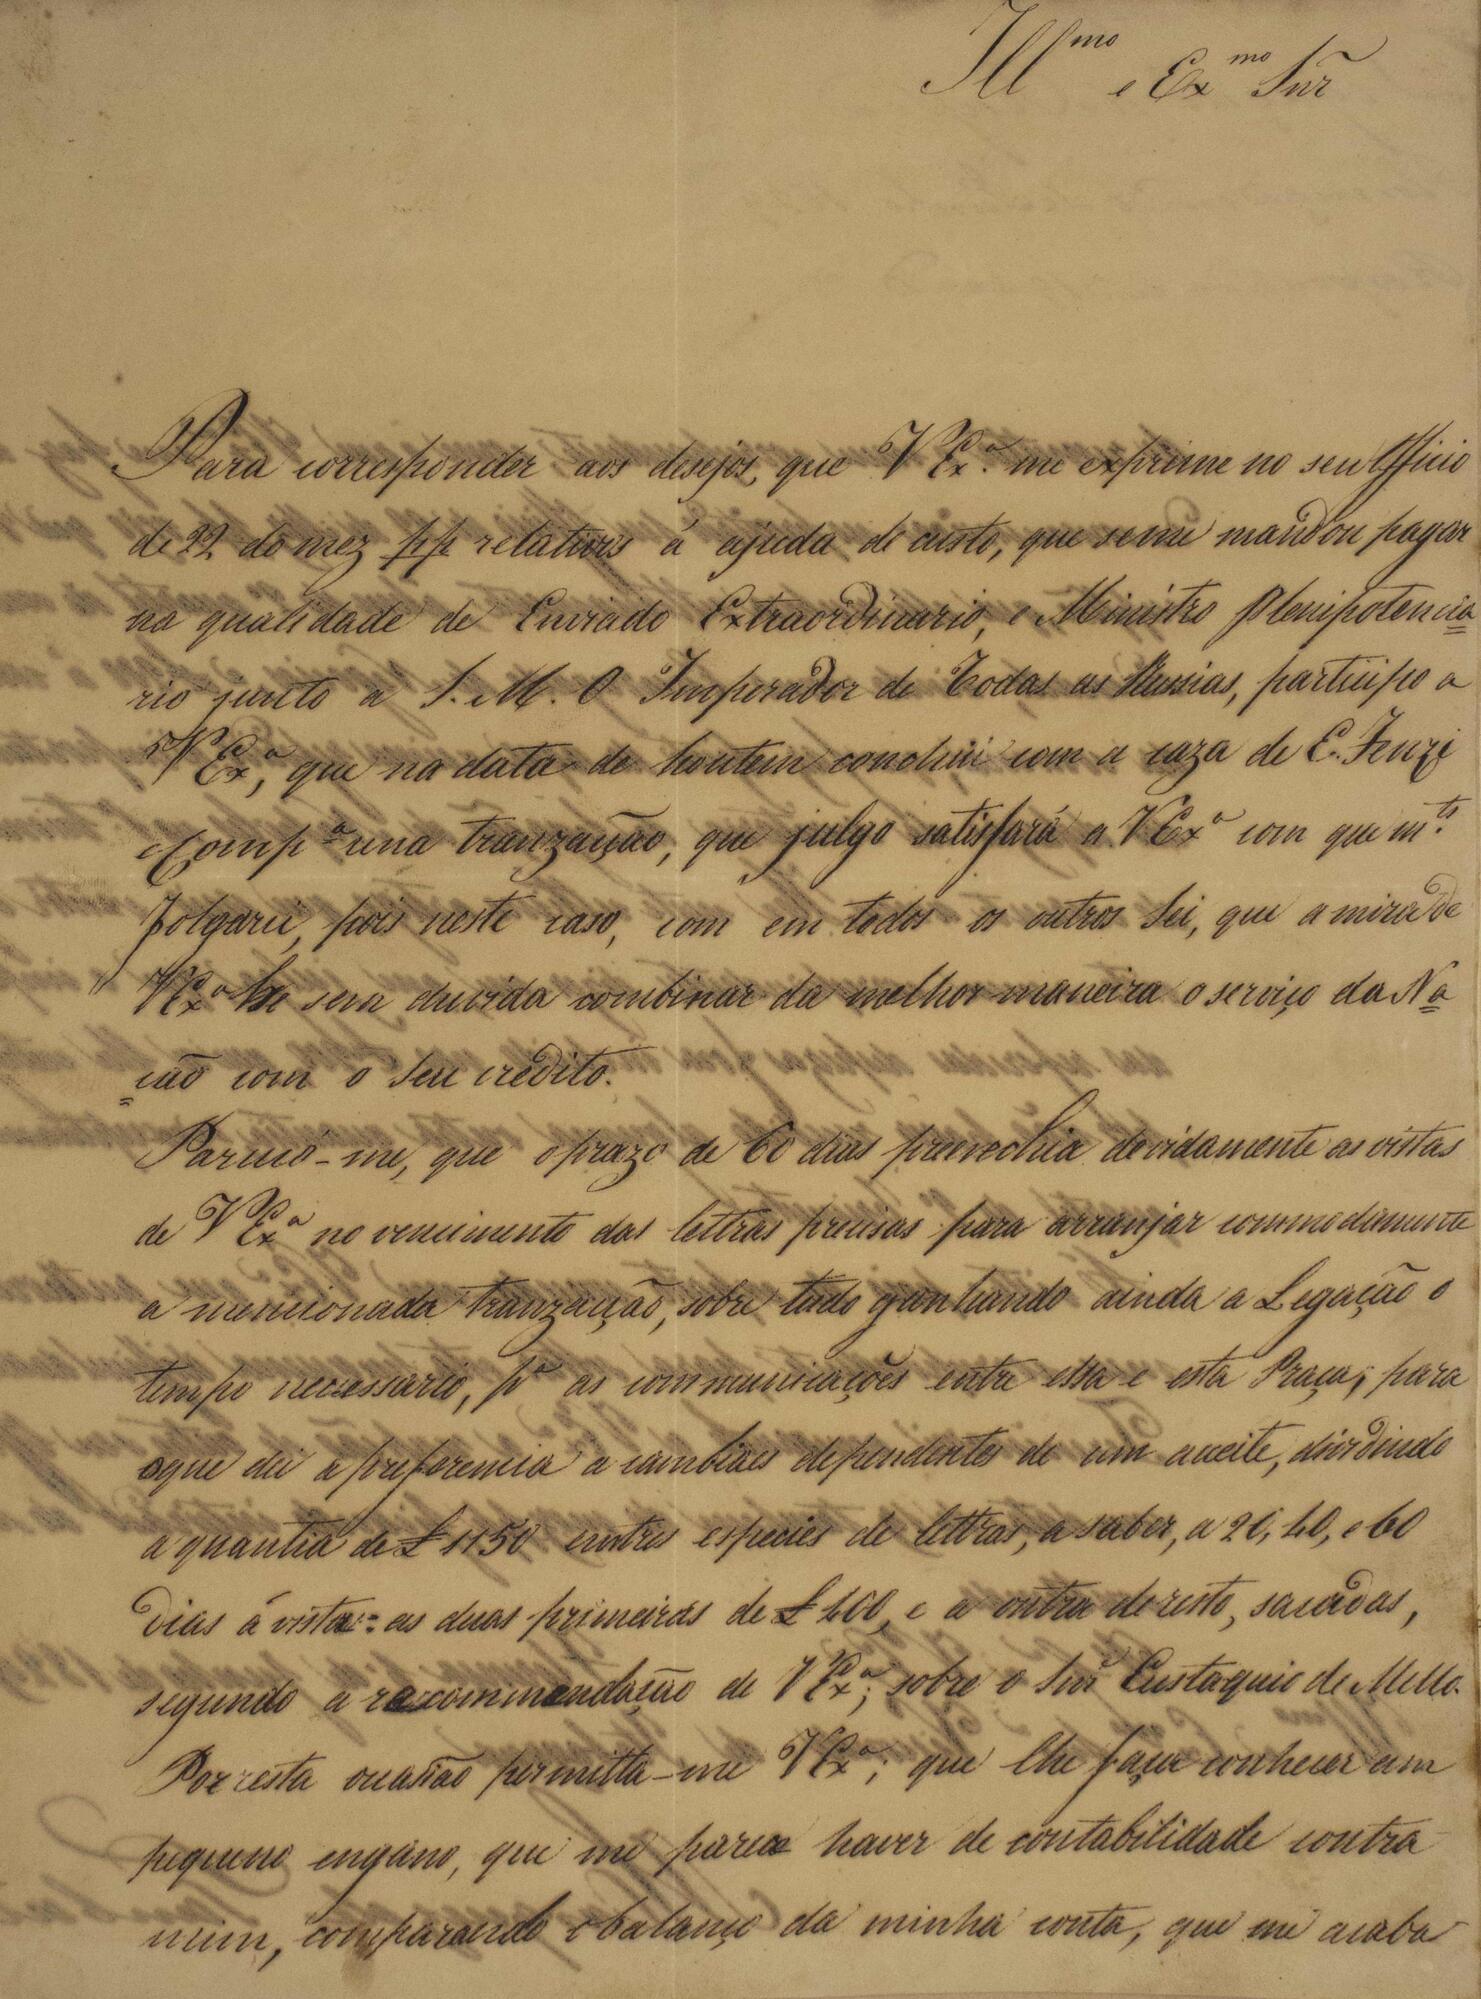 Illmo e Exmo Snr
Para corresponder aos desejos, que V Exa. me exprime no seu Officio
de 22 do mez pp relativos á ajuda de custo, que se me mandou pagar
na qualidade de Enviado Extraordinario, e Ministro Plenipotencia=
rio junto a S. M. O Imperador de Todas as Russias, participo a
V Exa, que na data de hontem conclui com a caza de E. Fenzi
e Compa uma tranzacção, que julgo satisfará a V Exa com que mto.
folgarei, pois neste caso, com em todos os outros sei, que a mira de
V Exa he sem duvida combinar da melhor maneira o serviço da Na=
=ção com o seu credito.
Pareceo-me, que o prazo de 60 dias preenchia devidamente as vistas
de V Exa no vencimento das lettras precisas para arranjar commodamente
a mencionada tranzacção, sobre tudo ganhando ainda a Legação o
tempo necessario, pa as communicações entre essa e esta Praça; para
o que dei a preferencia a cambiaes dependentes de um acceite, dividindo
a quantia de £ 1150 em tres especies de lettras, a saber, a 20, 40, e 60
dias á vista: = as duas primeiras de £ 400, e a outra de resto, sacadas,
segundo a recommendação de V Exa; sobre o Snr Eustaquio de Mello.
Por esta occasião permitta-me V Exa; que lhe faça conhecer um
pequeno engano, que me parece haver de contabilidade contra
mim, comparando o balanço da minha conta, que me acaba